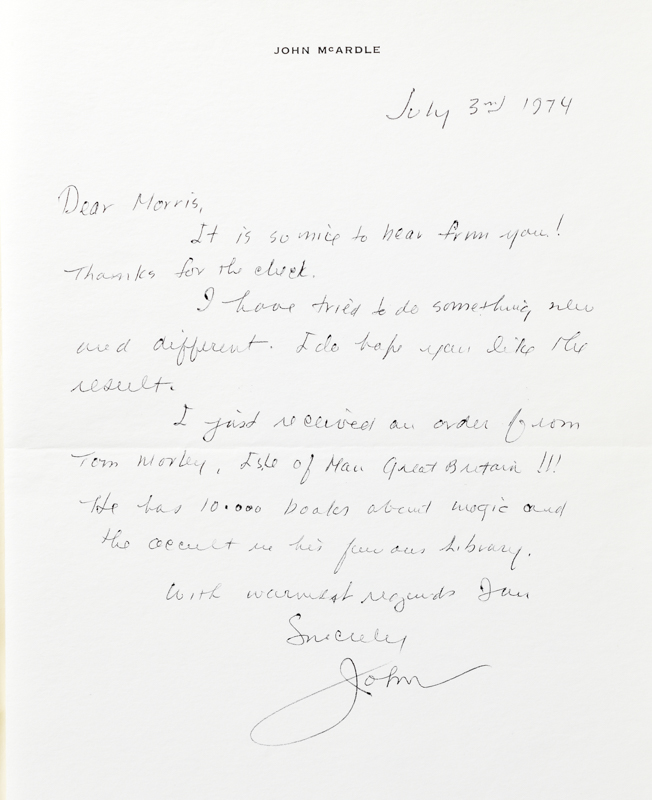 JOHN McARDLE
July 3rd 1974
Dear Morris,
It is so nice to hear from you!
Thanks for the check.
I have tried to do something new
and different. I do hope you like the
result.
I just received an order from
Tom Morley, Isle of Man Great Britain !!!
He has 10.000 books about magic and
the occult in his famous Library.
With warmest regards I am
Sincerely
John